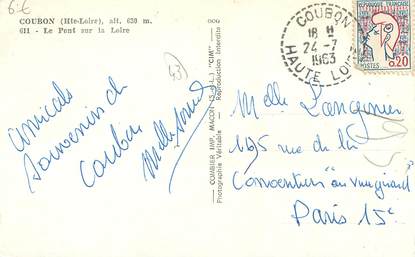 6€
COUBON (Hte-Loire), alt. 630 m.
611 - Le Pont sur la Loire
43
Amicals
Souvenirs de
Coubon
Melle
COMBIER IMP. MACON (S.-&-L.) "CIM"
Photographie Véritable - Reproduction Interdite
COUBON
18 H
24-7
1963
HAUTE LOIRE
POSTES
0,20
Melle Langinier
195 rue de la
Convention
Paris 15e